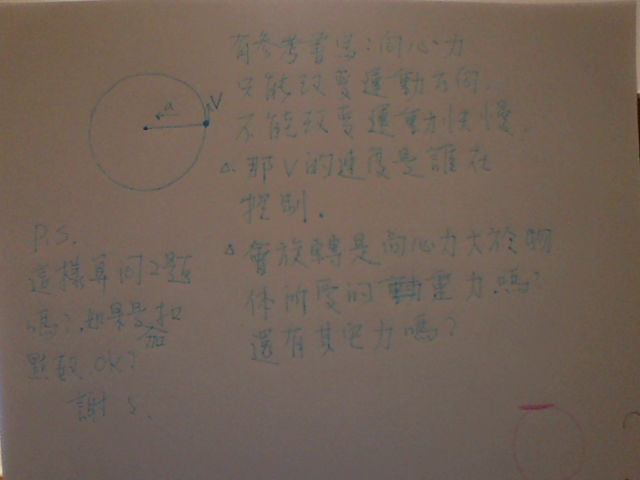 有參考書寫:向心力
只能改變運動方向.
不能改變運動快慢.
V
a
△. 那V的速度是誰在
控制.
△ 會旋轉是向心力大於物
体所受的重力嗎?
還有其它力嗎?
P.S.
這樣算問2題
嗎?.如果是扣
點數 OK?
謝 S.